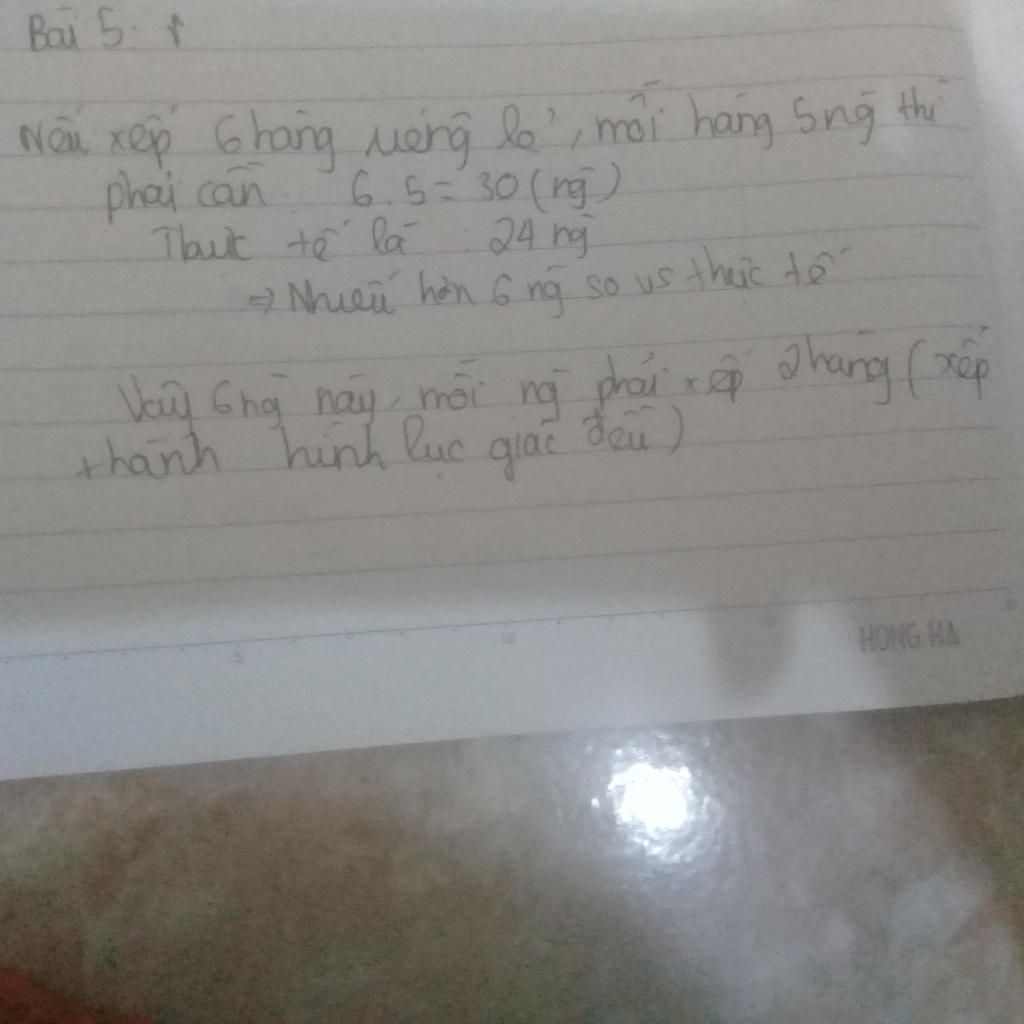 Bài 5:
Nếu xếp 6 hàng riêng lẻ, mỗi hàng 5 ng thì
phải cần 6.5 = 30 (ng)
Thực tế là 24 ng
=> Nhiều hơn 6 ng so vs thực tế
Vậy 6 ng này, mỗi ng phải xếp 2 hàng (xếp
thành hình lục giác đều)
HONG HA